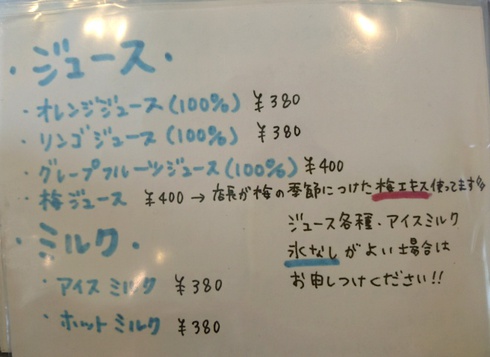 ・ジュース・
・オレンジジュース(100%) ¥380
・リンゴジュース(100%) ¥380
・グレープフルーツジュース(100%) ¥400
・梅ジュース ¥400 → 店長が梅の季節につけた梅エキス使ってます
・ミルク・
・アイスミルク ¥380
・ホットミルク ¥380
ジュース各種・アイスミルク
氷なしがよい場合は
お申しつけください!!